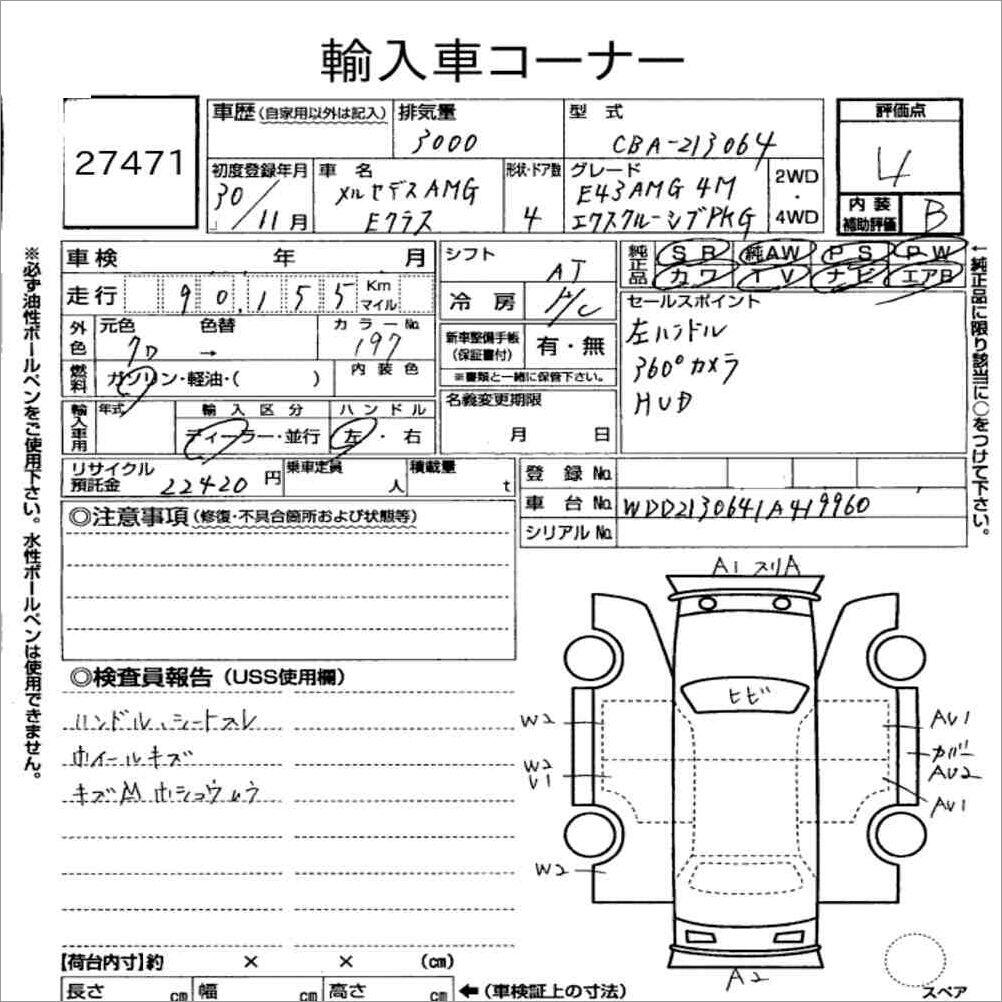 輸入車コーナー
27471
車歴 (自家用以外は記入)
排気量
3000
型式
CBA-213064
評価点
4
初度登録年月
30/11月
車名
メルセデスAMG
Eクラス
形状・ドア数
4
グレード
E43AMG 4M
エクスクルーシブPKG
2WD
・
4WD
内装
補助評価
B
車検 年 月
走行 90,155 Km
マイル
シフト
AT
冷房
A/C
純正品
SR 純AW PS PW
カワ TV ナビ エアB
外色
元色 色替
クロ →
カラーNo.
197
燃料
ガソリン・軽油・( )
内装色
新車整備手帳
(保証書付)
有・無
※書類と一緒に保管下さい。
セールスポイント
左ハンドル
360°カメラ
HUD
輸入車用
年式
輸入区分
ディーラー・並行
ハンドル
左・右
名義変更期限
月 日
リサイクル
預託金
22420円
乗車定員
人
積載量
t
登録No.
車台No.
WDD2130641A419960
シリアルNo.
◎注意事項 (修復・不具合箇所および状態等)
◎検査員報告 (USS使用欄)
ハンドル、シートスレ
ホイールキズ
A1 スリA
ヒビ
W2
W2
U1
W2
AU1
カバー
AU2
AU1
A2
スペア
【荷台内寸】約 × × (cm)
長さ cm 幅 cm 高さ cm ←(車検証上の寸法)
※必ず油性ボールペンをご使用下さい。水性ボールペンは使用できません。
←純正品に限り該当に○をつけて下さい。